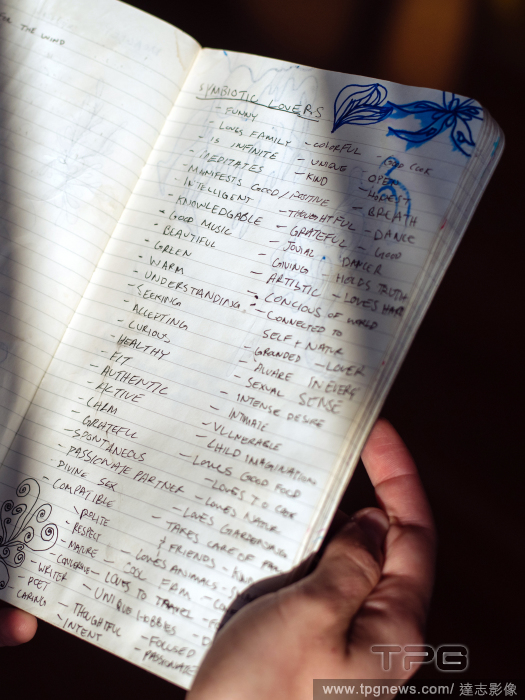 FOR THE WIND
SYMBIOTIC LOVERS
- FUNNY
- LOVES FAMILY
- IS INFINITE
- MEDITATES
- MANIFESTS GOOD/POSITIVE
- INTELLIGENT
- KNOWLEDGABLE
- GOOD MUSIC
- BEAUTIFUL
- GREEN
- WARM
- UNDERSTANDING
- SEEKING
- ACCEPTING
- CURIOUS
- HEALTHY
- FIT
- AUTHENTIC
- ACTIVE
- CALM
- GRATEFUL
- SPONTANEOUS
- PASSIONATE PARTNER
- DIVINE SEX
- COMPATIBLE
- POLITE
- RESPECT
- MATURE
- WRITER
- POET
- CARING
- COLORFUL
- UNIQUE
- KIND
- THOUGHTFUL
- GRATEFUL
- JOVIAL
- GIVING
- ARTISTIC
- CONCIOUS OF WORLD
- CONNECTED TO
SELF + NATUR
- GROUNDED
- LOVER
- AWARE IN EVERY
- SEXUAL SENSE
- INTENSE DESIRE
- INTIMATE
- VULNERABLE
- CHILD IMAGINATION
- LOVES GOOD FOOD
- LOVES TO COOK
- LOVES NATUR
- LOVES GARDENING
- TAKES CARE OF
+ FRIENDS
- LOVES ANIMALS
- COOL
- LOVES TO TRAVEL
- UNIQUE HOBBIES
- THOUGHTFUL
- INTENT
- FOCUSED
- PASSIONATE
COOK
- OPEN
- HONEST
- BREATH
- DANCE
- GOOD
DANCER
HOLDS TRUTH
- LOVES HARD
TPG
www.tpgnews.com/ 達志影像